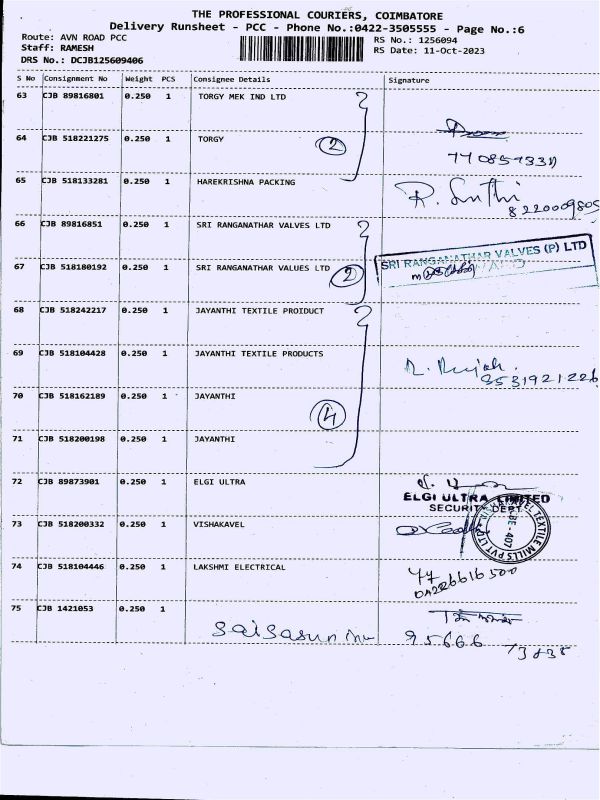 THE PROFESSIONAL COURIERS, COIMBATORE
Delivery Runsheet - PCC - Phone No.:0422-3505555 - Page No.:6
Route: AVN ROAD PCC
RS No.: 1256094
Staff: RAMESH
RS Date: 11-Oct-2023
DRS No.: DCJB125609406
S No Consignment No Weight PCS Consignee Details Signature
63 CJB 89816801 0.250 1 TORGY MEK IND LTD
64 CJB 518221275 0.250 1 TORGY
2
65 CJB 518133281 0.250 1 HAREKRISHNA PACKING
8220009805
66 CJB 89816851 0.250 1 SRI RANGANATHAR VALVES LTD
SRI RANGANATHAR VALVES (P) LTD
67 CJB 518180192 0.250 1 SRI RANGANATHAR VALUES LTD
2
68 CJB 518242217 0.250 1 JAYANTHI TEXTILE PROIDUCT
69 CJB 518104428 0.250 1 JAYANTHI TEXTILE PRODUCTS
9531921226
70 CJB 518162189 0.250 1 JAYANTHI
4
71 CJB 518200198 0.250 1 JAYANTHI
72 CJB 89873901 0.250 1 ELGI ULTRA
ELGI ULTRA LIMITED
SECURITY DEPT.
73 CJB 518200332 0.250 1 VISHAKAVEL
TEXTILE MILLS PVT LTD
74 CJB 518104446 0.250 1 LAKSHMI ELECTRICAL
75 CJB 1421053 0.250 1
95666
73838